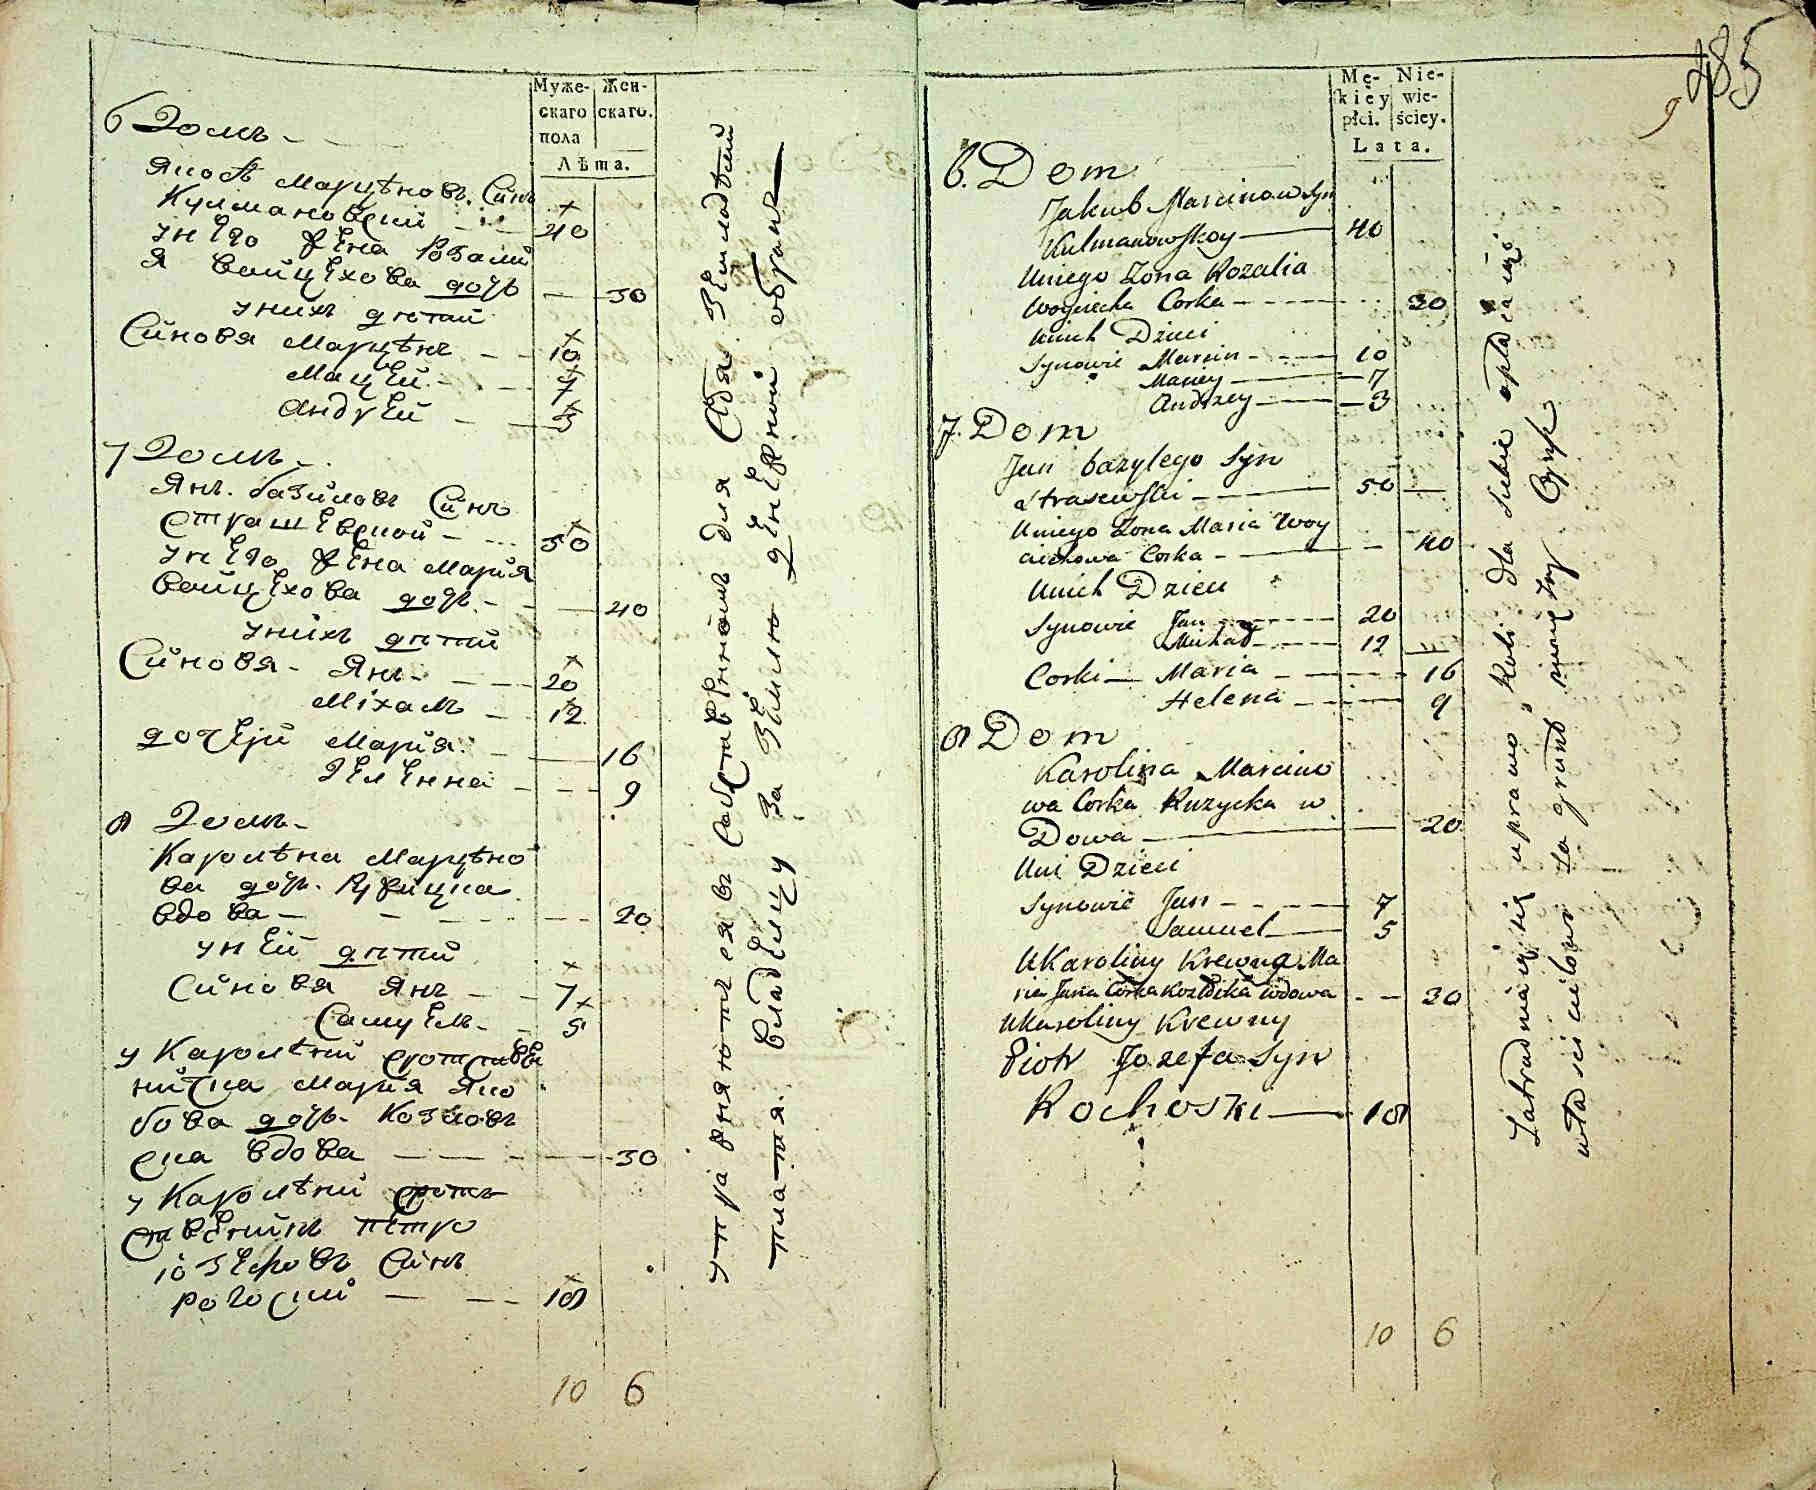 Муже- Жен-
скаго скаго.
пола
Лѣта.
6 Домъ
Якобъ Марцѣновъ Синъ
Кулмановскій 40
у него жена Розалі
я Войцехова дочь 30
у нихъ дѣтей
Синовя Марцѣнъ 10
Мацей 7
Андржей 3
7 Домъ
Янъ базиловъ Синъ
Страшевской 50
у него жена Марія
Войцехова дочь 40
у нихъ дѣтей
Синовя Янъ 20
Міхалъ 12
дочери Марія 16
Геленна 9
8 Домъ
Каролѣна Марцѣно
ва дочь Ружицка
вдова 20
у ней дѣтей
Синовя Янъ 7
Самуель 5
у Каролѣни сротствен
ница Марія Яко
бова дочь Козловъ
ска вдова 30
у Каролѣни срот
ственикъ петръ
іозефовъ Синъ
рогоскій 18
10 6
упражняются в
для себя
платя владелцу за землю денежной оброкъ
485
9
Mę- Nie-
kiey wie-
płci. ściey.
Lata.
6. Dom
Jakub Marcinow Syn
Kulmanowskoy 40
Uniego Zona Rozalia
Woyciecha Corka 30
Unich Dzieci
Synowie Marcin 10
Maciey 7
Andrzey 3
7. Dom
Jan bazylego Syn
Straszewski 50
Uniego Zona Maria Woy
ciechowa Corka 40
Unich Dzieci
Synowie Jan 20
Michał 12
Corki Maria 16
Helena 9
8 Dom
Karolina Marcino
wa Corka Ruzycka w
Dowa 20
Uni Dzieci
Synowie Jan 7
Samuel 5
UKaroliny Krewna Ma
ria Jana Corka Kozłoska wdowa 30
UKaroliny Krewny
Piotr Jozefa Syn
Rochoski 18
10 6
Zatrudniaią się uprawą Roli dla siebie opłacaiąc
właścicielowi za grunt Czynsz